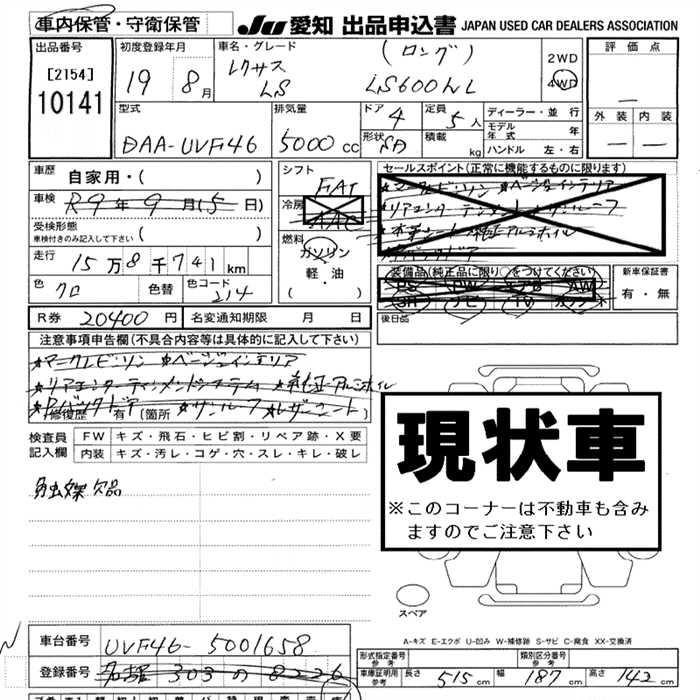 車内保管・守衛保管 JU 愛知 出品申込書 JAPAN USED CAR DEALERS ASSOCIATION
出品番号 初度登録年月 車名・グレード (ロング) 評価点
[2154] 19 8月 レクサス 2WD
10141 LS LS600hL 4WD
外装 内装
型式 排気量 ドア 4 定員 5人 ディーラー・並行
モデル年式 年
DAA-UVF46 5000cc 形状 SD 積載 kg ハンドル 左・右
車歴 自家用・( ) シフト FAT セールスポイント(正常に機能するものに限ります)
車検 R9年9月(5日) 冷房 AAC
受検形態 ( )
車検付きのみ記入して下さい
燃料 ガソリン
走行 15万8千741km 軽・油
装備品(純正品に限り○をつけてください) 新車保証書
色 クロ 色替 色コード 214 ・( ) 有・無
R券 20400円 名変通知期限 月 日 後日品
注意事項申告欄(不具合内容等は具体的に記入して下さい)
★マークレビンソン ★ベージュインテリア
★リアエンターテインメントシステム ★純正アルミホイル
★Pバックドア ★サンルーフ ★レザーシート
修復歴 有(箇所 )
検査員記入欄 FW キズ・飛石・ヒビ割・リペア跡・X要
内装 キズ・汚レ・コゲ・穴・スレ・キレ・破レ
触媒欠品
現状車
※このコーナーは不動車も含み
ますのでご注意下さい
スペア
A-キズ E-エクボ U-凹み W-補修跡 S-サビ C-腐食 XX-交換済
車台番号 UVF46-5001658
形式指定番号 参考 類別区分番号 参考
登録番号 303 の 8226
車庫証明用 参考 長さ 515cm 幅 187cm 高さ 142cm